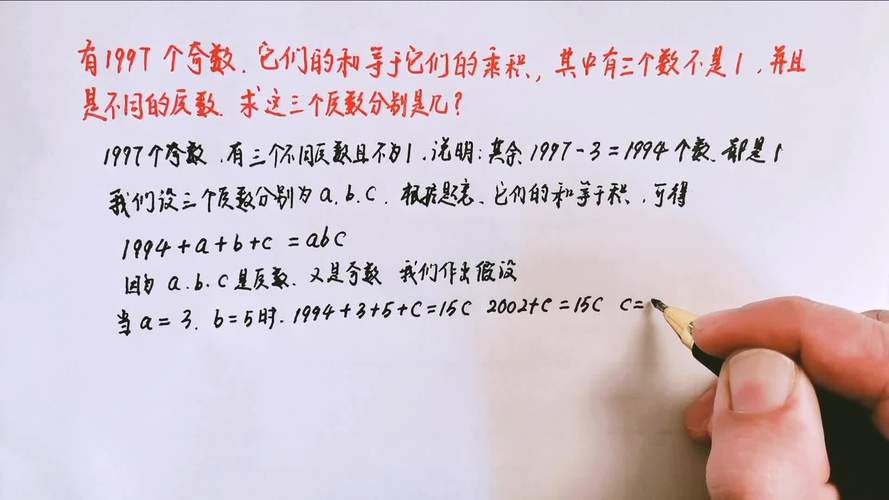 有1997个奇数.它们的和等于它们的乘积,其中有三个数不是1.并且
是不同的质数.求这三个质数分别是几?
1997个奇数.有三个不同质数且不为1.说明:其余1997-3=1994个数.都是1
我们设三个质数分别为a.b.c.根据题意.它们的和等于积.可得
1994+a+b+c=abc
因为a.b.c是质数.又是奇数 我们作出假设
当a=3.b=5时.1994+3+5+c=15c 2002+c=15c c=